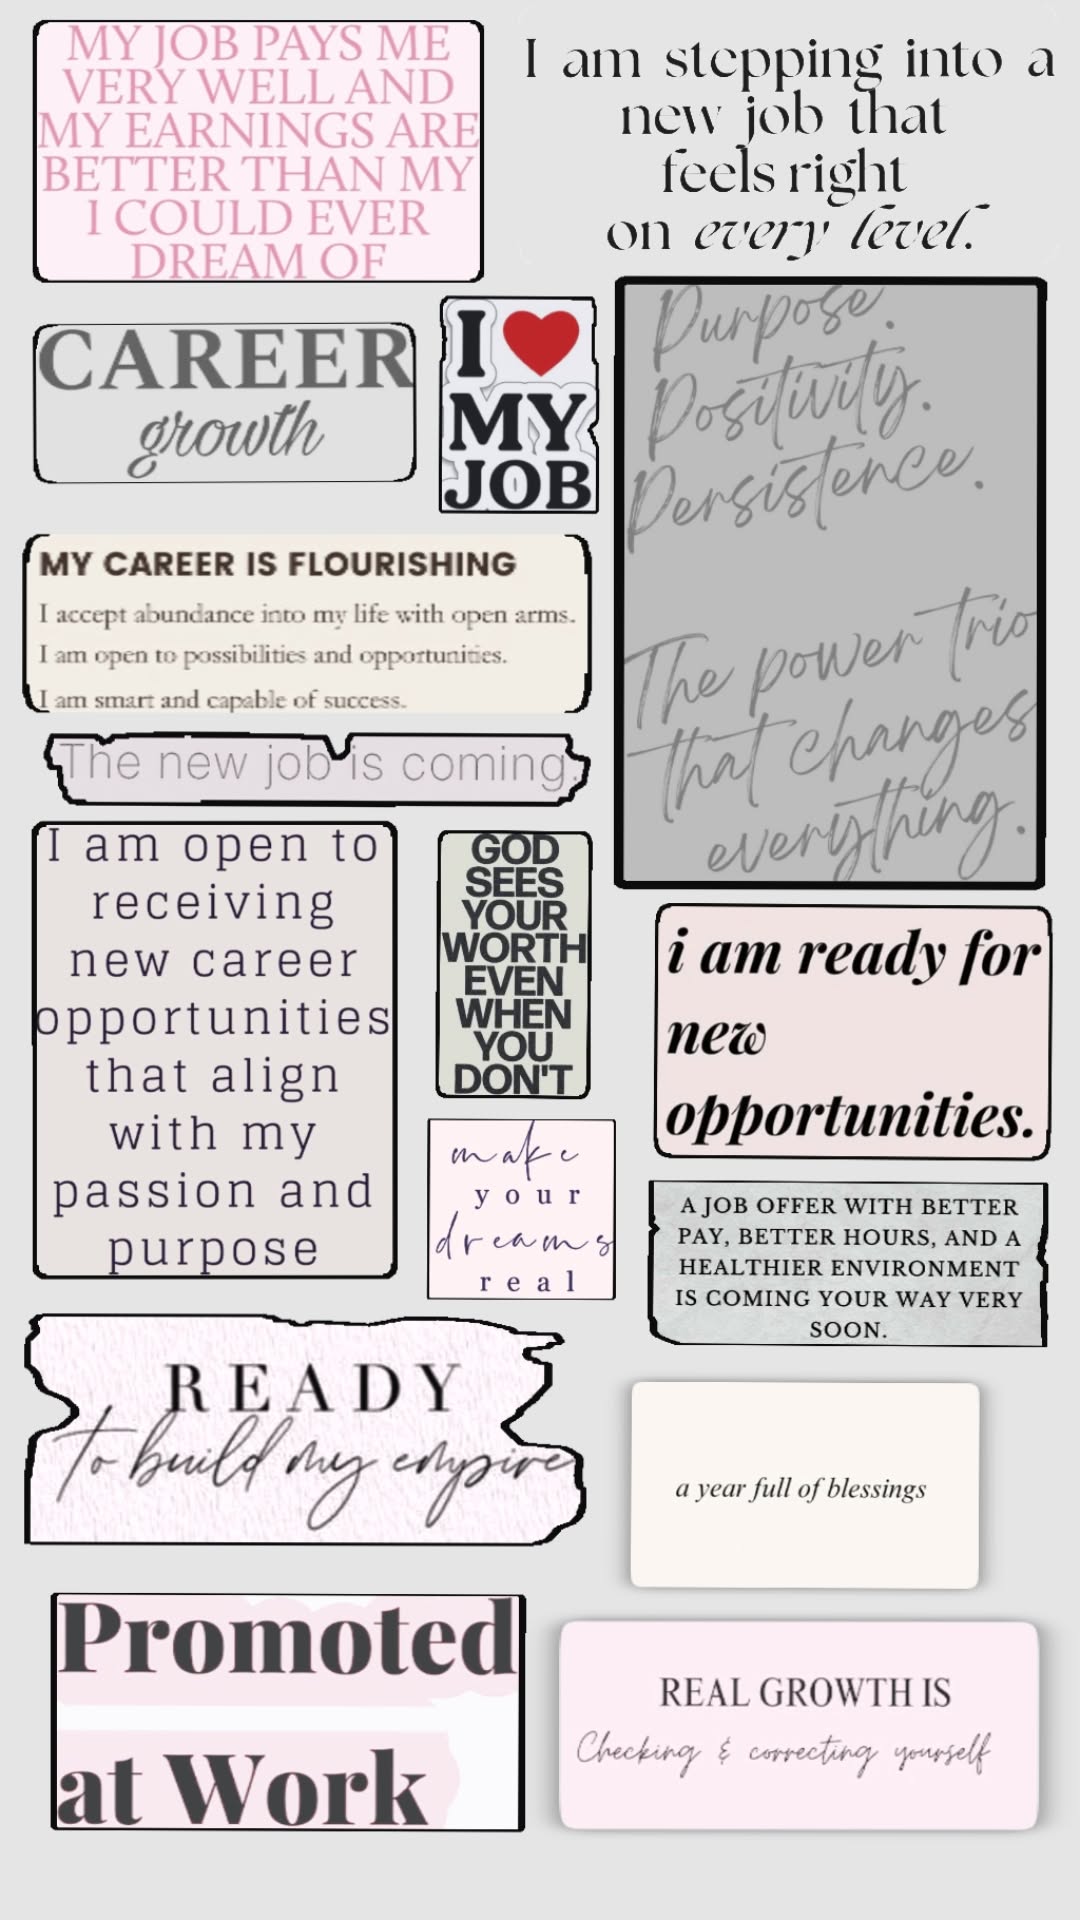 MY JOB PAYS ME
VERY WELL AND
MY EARNINGS ARE
BETTER THAN MY
I COULD EVER
DREAM OF
I am stepping into a
new job that
feels right
on every level.
CAREER
growth
I ❤
MY
JOB
Purpose.
Positivity.
Persistence.
The power trio
that changes
everything.
MY CAREER IS FLOURISHING
I accept abundance into my life with open arms.
I am open to possibilities and opportunities.
I am smart and capable of success.
The new job is coming.
I am open to
receiving
new career
opportunities
that align
with my
passion and
purpose
GOD
SEES
YOUR
WORTH
EVEN
WHEN
YOU
DON'T
i am ready for
new
opportunities.
make
your
dreams
real
A JOB OFFER WITH BETTER
PAY, BETTER HOURS, AND A
HEALTHIER ENVIRONMENT
IS COMING YOUR WAY VERY
SOON.
READY
to build my empire
a year full of blessings
Promoted
at Work
REAL GROWTH IS
Checking & correcting yourself